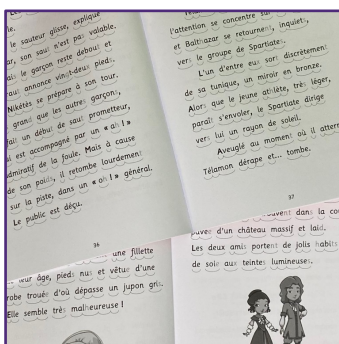 le.
le sauteur glisse, explique
son saut n'est pas valable.
le garçon reste debout et
annonce vingt-deux pieds.
Nikétès se prépare à son tour.
grand que les autres garçons,
fait un début de saut prometteur,
est accompagné par un « ah ! »
admiratif de la foule. Mais à cause
de son poids, il retombe lourdement
sur la piste, dans un « oh ! » général.
Le public est déçu.
36
l'attention se concentre
et Balthazar se retournent, inquiets,
vers le groupe de Spartiates.
L'un d'entre eux sort discrètement
de sa tunique, un miroir en bronze.
Alors que le jeune athlète, très léger,
paraît s'envoler, le Spartiate dirige
vers lui un rayon de soleil.
Aveuglé au moment où il atterrit
Télamon dérape et... tombe.
37
une fillette
leur âge, pieds nus et vêtue d'une
robe trouée d'où dépasse un jupon gris.
Elle semble très malheureuse !
dans la cou
pavée d'un château massif et laid.
Les deux amis portent de jolis habits
de soie aux teintes lumineuses.